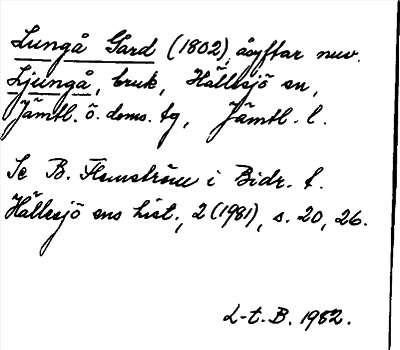 Lungå Gard (1802) åsyftar nuv.
Ljungå, bruk, Hällesjö sn,
Jämtl. ö. doms. tg, Jämtl. l.
Se B. Flemström i Bidr. t.
Hällesjö sns hist., 2 (1981), s. 20, 26.
L-t. B. 1982.